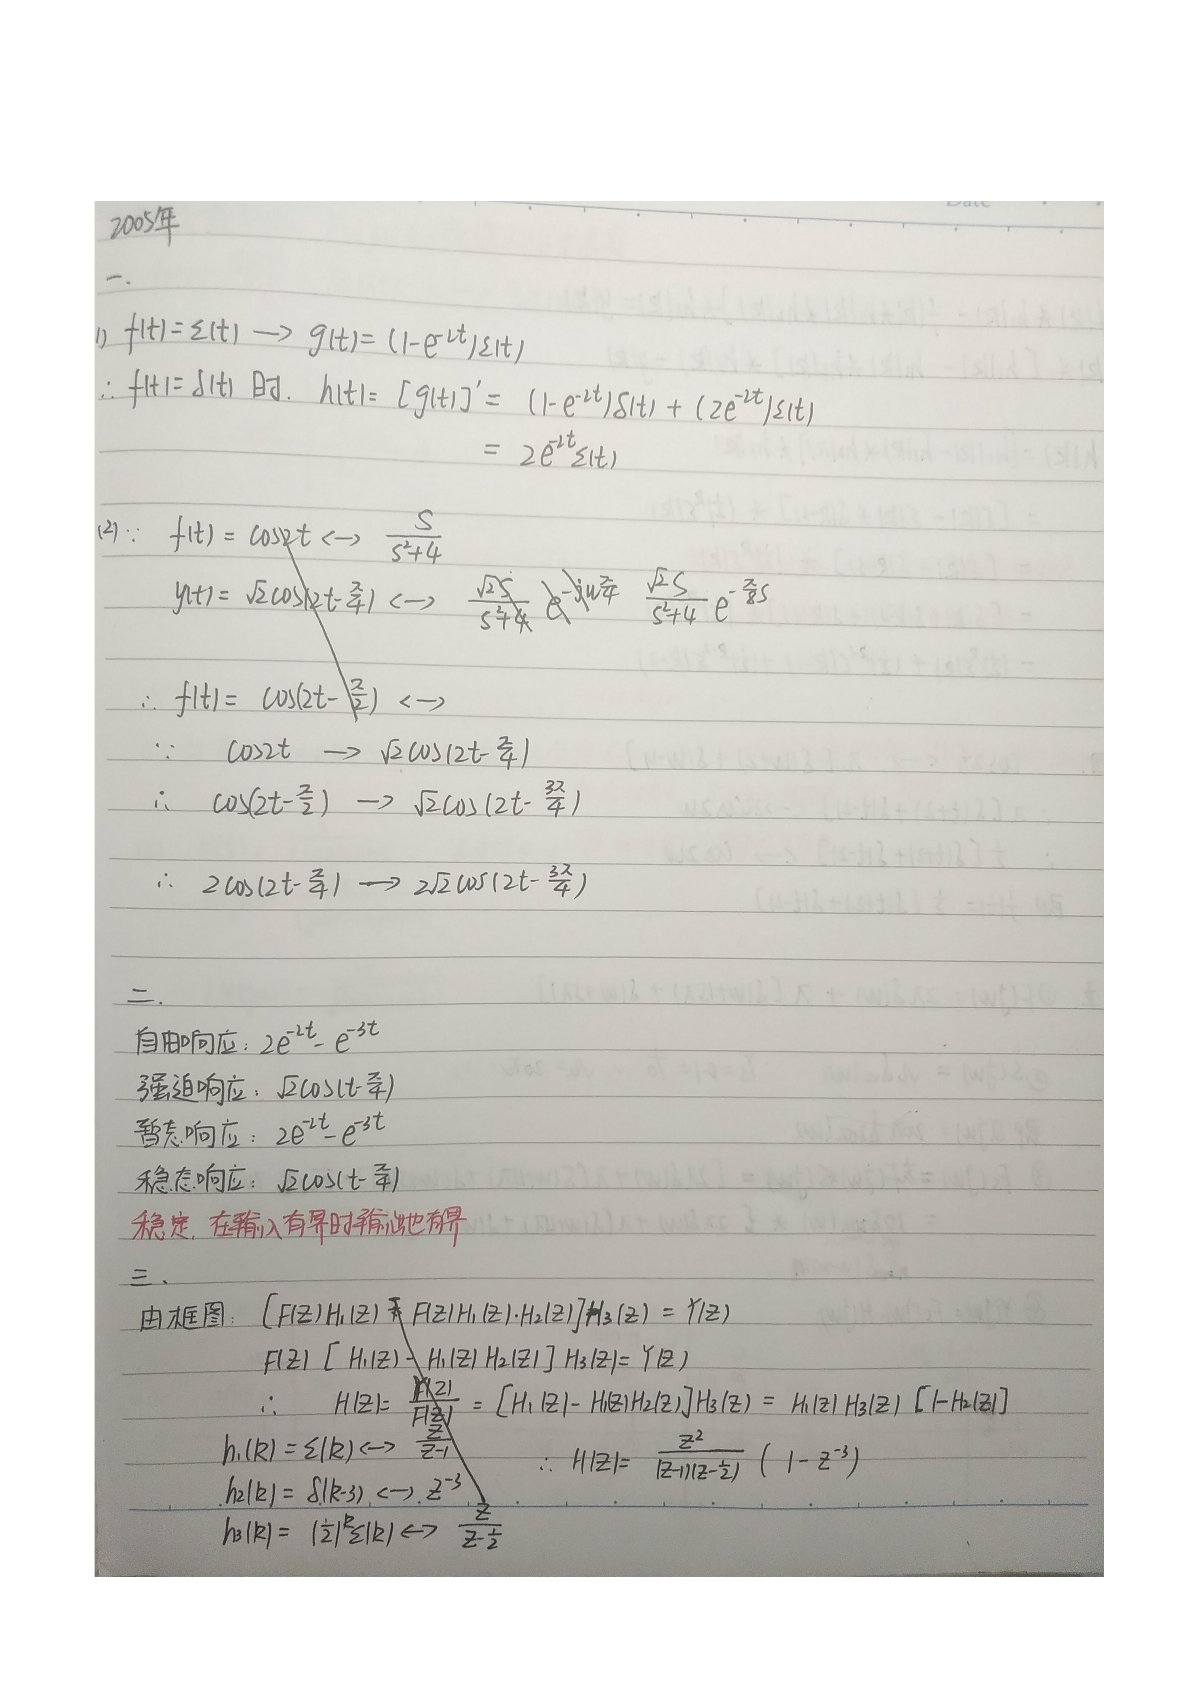 Date
2005年
一.
1) f(t)=Σ(t) —> g(t)=(1-e^{-2t})Σ(t)
∴ f(t)=δ(t) 时. h(t)=[g(t)]'= (1-e^{-2t})δ(t)+(2e^{-2t})Σ(t)
= 2e^{-2t}Σ(t)
(2) ∵ f(t)=cos2t <—> S/(S²+4)
y(t)=√2cos(2t-π/4) <—> √2S/(S²+4) e^{-jωπ/4} √2S/(S²+4) e^{-π/8 S}
∴ f(t)= cos(2t-π/2) <—>
∵ cos2t —> √2cos(2t-π/4)
∴ cos(2t-π/2) —> √2cos(2t-3π/4)
∴ 2cos(2t-π/4) —> 2√2cos(2t-3π/4)
二.
自由响应: 2e^{-2t}-e^{-3t}
强迫响应: √2cos(t-π/4)
暂态响应: 2e^{-2t}-e^{-3t}
稳态响应: √2cos(t-π/4)
稳定, 在输入有界时输出也有界
三、
由框图: [F(Z)H₁(Z) - F(Z)H₁(Z)·H₂(Z)]H₃(Z) = Y(Z)
F(Z)[H₁(Z)-H₁(Z)H₂(Z)]H₃(Z)=Y(Z)
∴ H(Z)= Y(Z)/F(Z) = [H₁(Z)-H₁(Z)H₂(Z)]H₃(Z) = H₁(Z)H₃(Z)[1-H₂(Z)]
h₁(k)=Σ(k)<—> Z/(Z-1) ∴ H(Z)= Z²/((Z-1)(Z-1/2)) (1-Z^{-3})
h₂(k)=δ(k-3) <—> Z^{-3}
h₃(k)=(1/2)^kΣ(k)<—> Z/(Z-1/2)